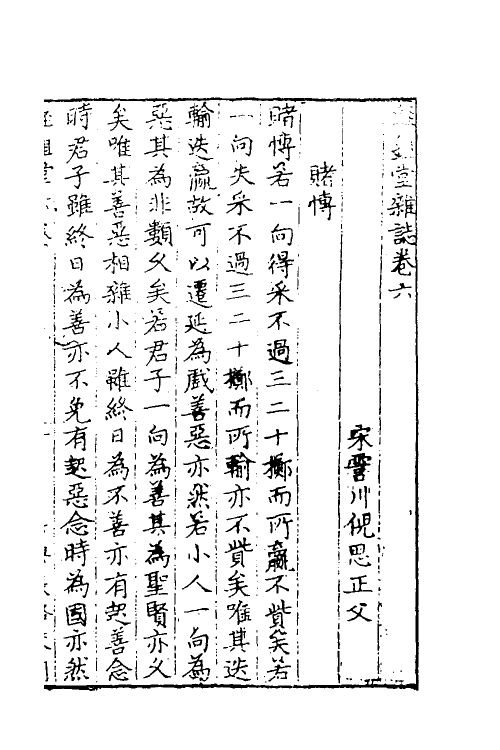 堂雜誌卷六
宋霅川倪思正父
賭愽
賭愽若一向得采不過三二十擲而所贏不貲矣若
一向失采不過三二十擲而所輸亦不貲矣唯其迭
輸迭贏故可以遷延為戲善惡亦然若小人一向為
惡其為非類父矣若君子一向為善其為聖賢亦父
矣唯其善惡相雜小人雖終日為不善亦有起善念
時君子雖終日為善亦不免有起惡念時為國亦然